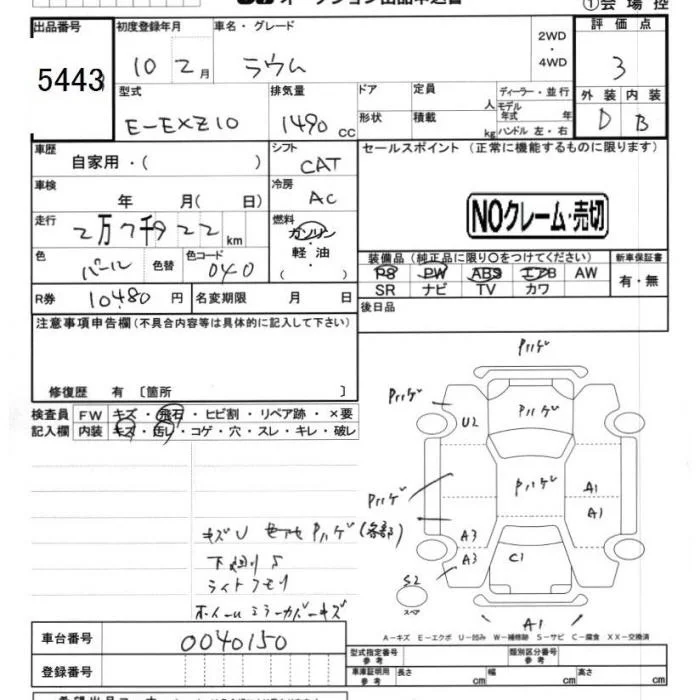 オークション出品申込書
①会場控
出品番号 初度登録年月 車名・グレード 2WD・4WD 評価点
5443 10 2月 ラウム 3
型式 排気量 ドア 定員 人 ディーラー・並行 外装 内装
E-EXZ10 1490 cc 形状 積載 kg モデル年式 年 ハンドル 左・右 D B
車歴 自家用・( ) シフト CAT セールスポイント (正常に機能するものに限ります)
車検 年 月( 日) 冷房 AC
NOクレーム・売切
走行 2万7千922 km 燃料 ガソリン・軽油・( )
色 パール 色替 色コード 040
装備品 (純正品に限り○をつけてください) 新車保証書
PS PW ABS エアB AW 有・無
SR ナビ TV カワ
R券 10480 円 名変期限 月 日
後日品
注意事項申告欄 (不具合内容等は具体的に記入して下さい)
修復歴 有 〔箇所 〕
検査員 FW キズ・飛石・ヒビ割・リペア跡・×要
記入欄 内装 キズ・汚レ・コゲ・穴・スレ・キレ・破レ
Pハゲ
Pハゲ
U2
Pハゲ
Pハゲ
Pハゲ
A1
A1
A3
A3
C1
S2
スペア
A1
キズU Pハゲ(各部)
下廻りS
ライトクモリ
ホイールミラーカバーキズ
A-キズ E-エクボ U-凹み W-補修跡 S-サビ C-腐食 XX-交換済
車台番号 0040150
登録番号
型式指定番号 参考 類別区分番号 参考
車庫証明用 参考 長さ cm 幅 cm 高さ cm